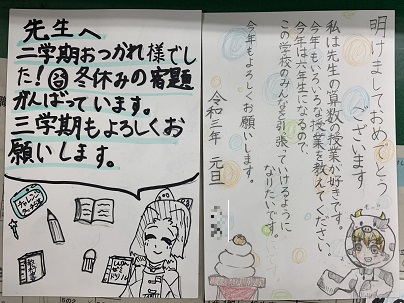 先生へ
二学期おつかれ様でし
た!冬休みの宿題
がんばっています。
三学期もよろしくお
願いします。
明けましておめでとう
ございます
私は先生の算数の授業が好きです。
今年もいろいろな授業を教えてください。
今年は六年生になるので、
この学校のみんなを引張っていけるように
なりたいです。
今年もよろしくお願いします。
令和三年 元旦